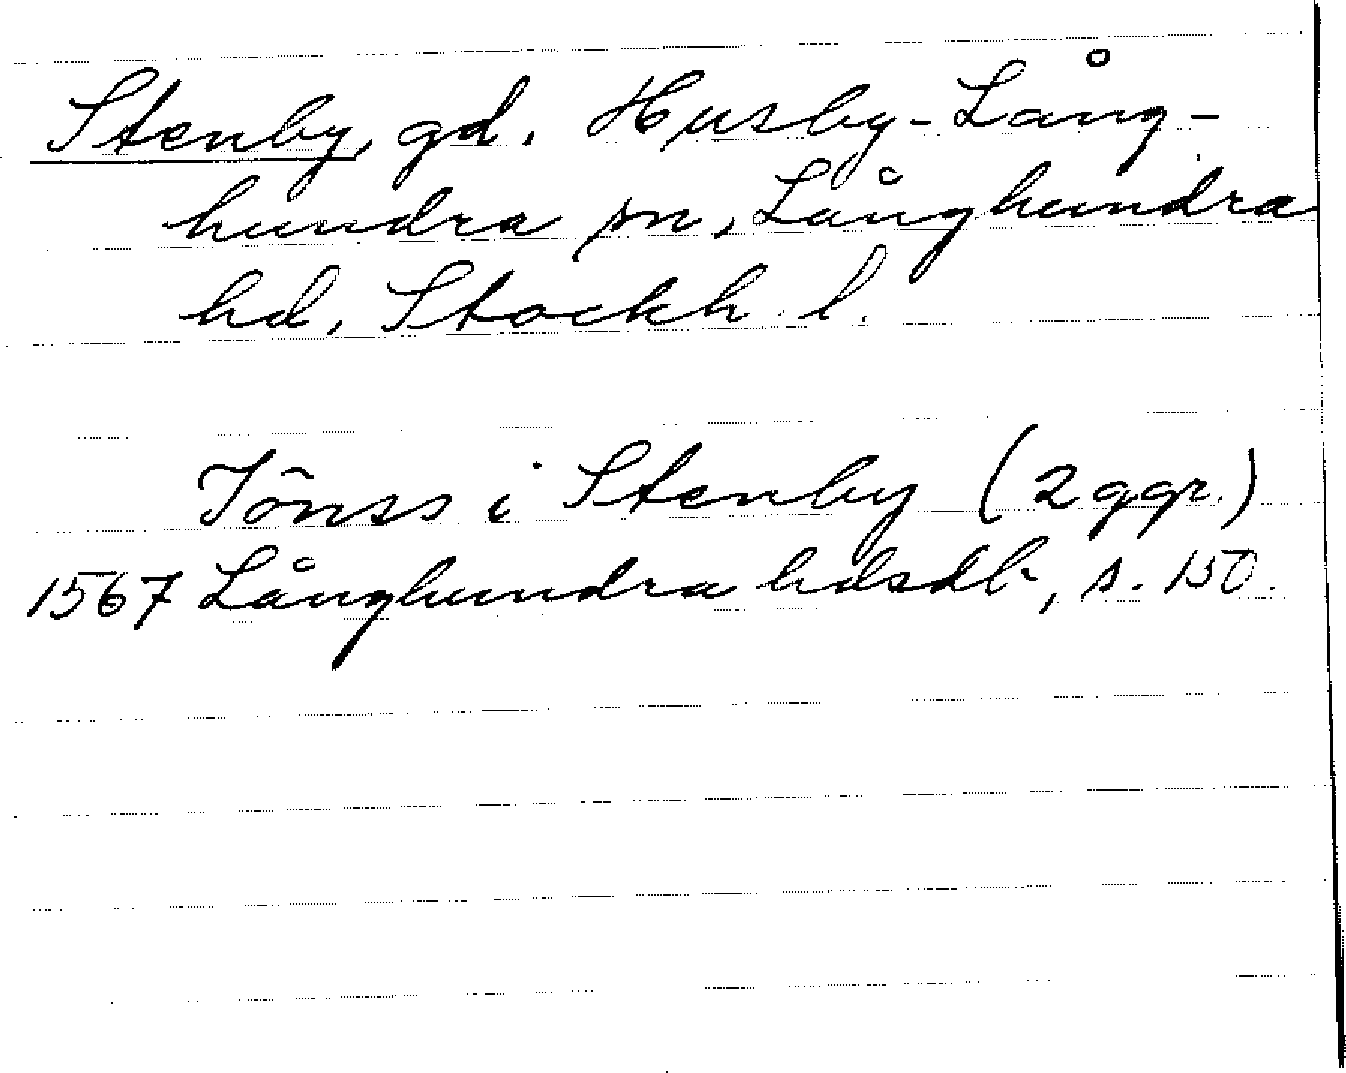 Stenby, gd. Husby-Lång-
hundra sn, Långhundra
hd, Stockh. l.
Jönss i Stenby (2 ggr.)
1567 Långhundra hdsdb, s. 150.